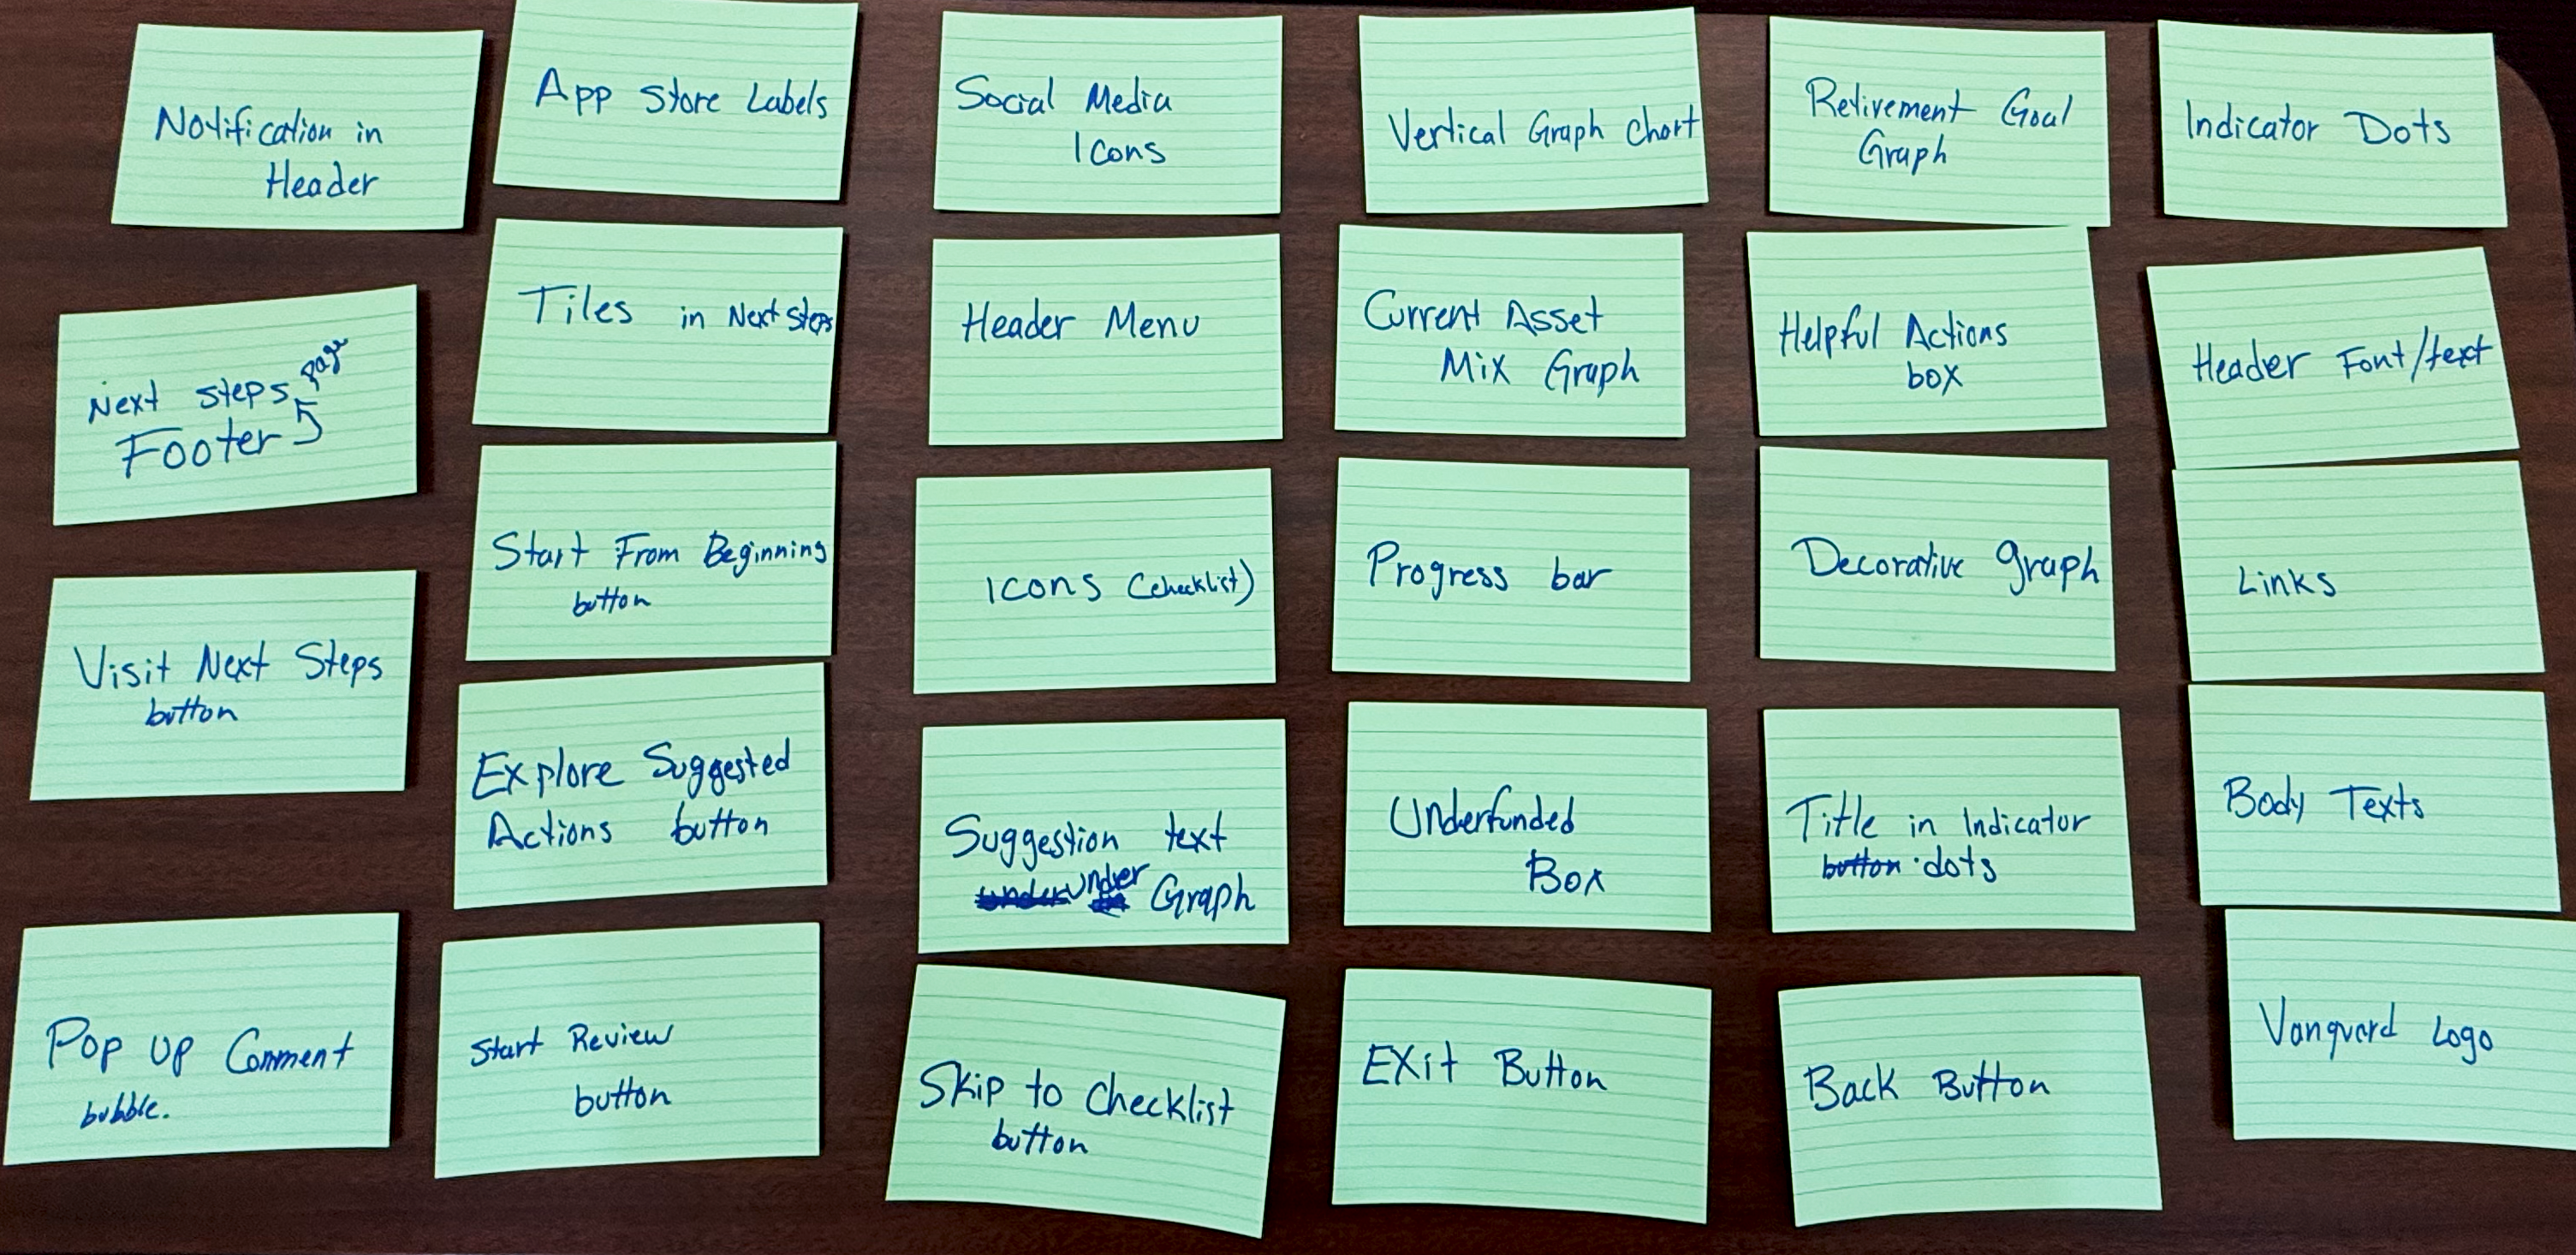 Notification in
Header
App Store Labels
Social Media
Icons
Vertical Graph Chart
Retirement Goal
Graph
Indicator Dots
Next steps page
Footer
Tiles in Next Steps
Header Menu
Current Asset
Mix Graph
Helpful Actions
box
Header Font/text
Visit Next Steps
button
Start From Beginning
button
Icons (checklist)
Progress bar
Decorative graph
Links
Explore Suggested
Actions button
Suggestion text
under Graph
Underfunded
Box
Title in Indicator
button dots
Body Texts
Pop up Comment
bubble.
Start Review
button
Skip to Checklist
button
Exit Button
Back Button
Vanguard Logo